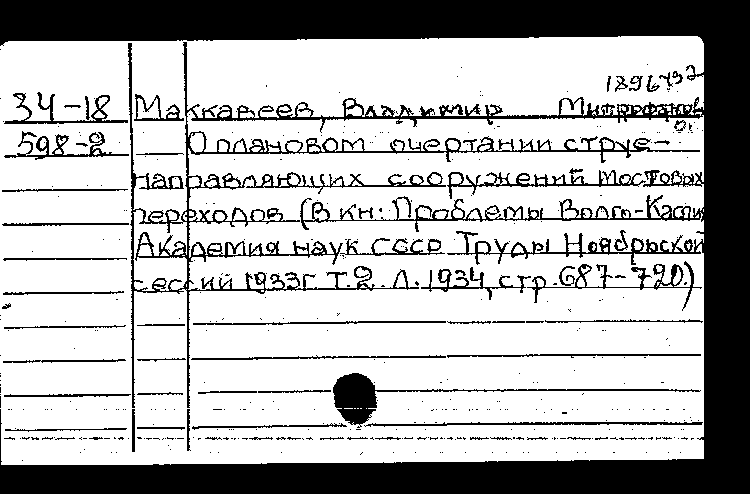 34-18 Маккавеев, Владимир Митрофанов
598-2 О плановом очертании струе-
направляющих сооружений мостовых
переходов (В кн: Проблемы Волго-Каспи
Академия наук СССР Труды Ноябрьской
сессий 1933г. Т.2. Л. 1934, стр. 687-720.)